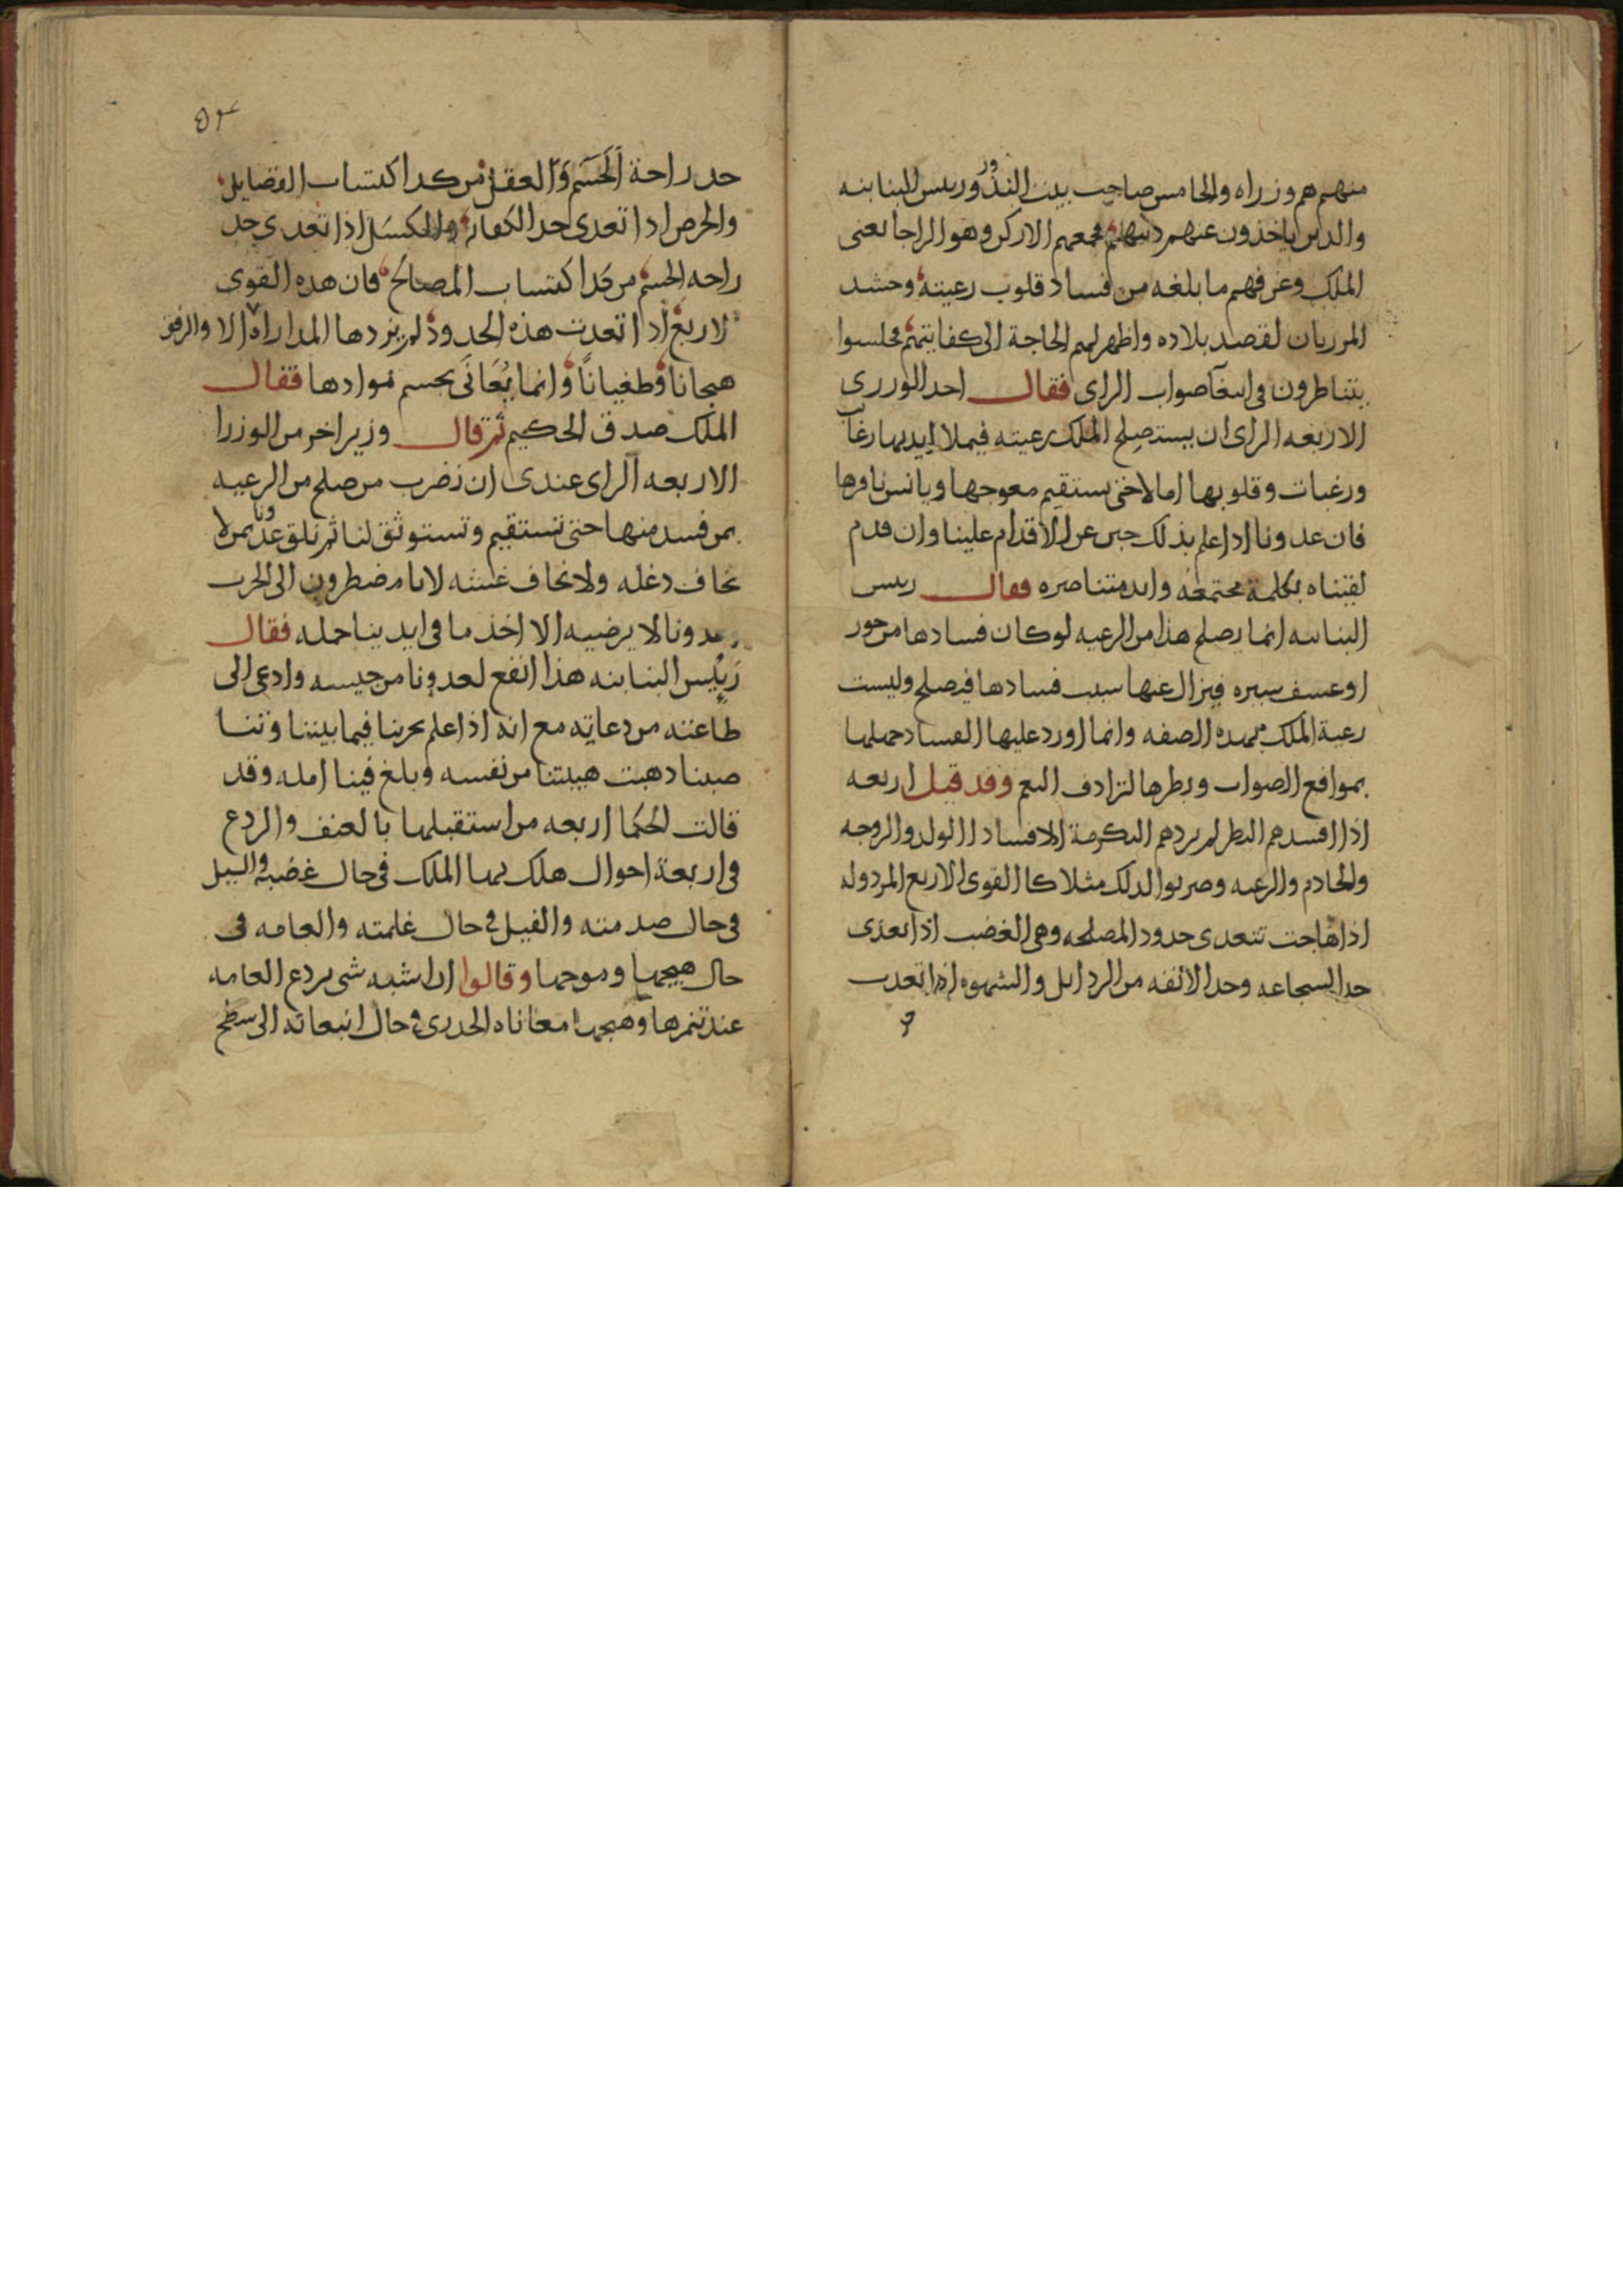 منهم هم وزراه والخامس صاحب بيت النذور وريس البنابنه
والدين ياخذون عنهم دينهم فجمعهم الاركن وهو الراجا يعنى
الملك وعرفهم ما بلغه من فساد قلوب رعيته وحشد
المرزبان لقصد بلاده واظهر لهم الحاجة الى كفايتهم فجلسوا
يتناظرون فى ابتغا صواب الراى فقال احد الوزرى
الاربعه الراى ان يستصلح الملك رعيته فيملا ايديها رغايب
ورغبات وقلوبها امالا حتى يستقيم معوجها ويانس نافرها
فان عدونا اذا علم بذلك جبن عن الاقدام علينا وان قدم
لقيناه بكلمة مجتمعه وايد متناصره فقال ريس
البنابنه انما يصلح هذا من الرعيه لو كان فسادها من جور
او عسف سيره فيزال عنها سبب فسادها فيصلح وليست
رعية الملك بهذه الصفه وانما اورد عليها الفساد جهلها
بمواقع الصواب وبطرها لترادف النعم وقد قيل اربعه
اذا افسدهم البطر لم يردهم التكرمة الا فسادا الولد والزوجه
والخادم والرعيه وضربوا لذلك مثلا كالقوى الاربع المردوله
اذا هاجت تتعدى حدود المصلحه وهى الغضب اذا تعدى
حد الشجاعه وحد الانفه من الرذايل والشهوه اذا تعدت
حد راحة الجسم والعقل من كد اكتساب الفضايل
والحرص اذا تعدى حد الكفايه والكسل اذا تعدى حد
راحه الجسم من كد اكتساب المصالح فان هذه القوى
الاربع اذا تعدت هذه الحدود لم يزدها المداراه الا والرفق
هيجانا وطغيانا وانما يعانى بحسم موادها فقال
الملك صدق الحكيم ثم قال وزير اخر من الوزرا
الاربعه الراى عندى ان نضرب من صلح من الرعيه
بمن فسد منها حتى تستقيم وتستوثق لنا ثم نلق عدونا بمن لا
نخاف دغله ولا نخاف غشه لانا مضطرون الى الحرب
عدونا لا يرضيه الا اخذ ما فى ايدينا جمله فقال
رييس البنابنه هذا انفع لعدونا من جيسه وادعى الى
طاعته من دعاته مع انه اذا علم بحربنا فيما بيننا وتننا
صبنا ذهبت هيبتنا من نفسه وبلغ فينا امله وقد
قالت الحكما اربعه من استقبلها بالعنف والردع
فى اربعة احوال هلك بها الملك فى حال غضبه والسيل
فى حال صدمته والفيل فى حال غلمته والعامه فى
حال هيجها وموجها وقالوا ان اشبه شى بردع العامه
عند تنمرها وهيجها معاناه الجدرى فى حال انبعاثه الى سطح